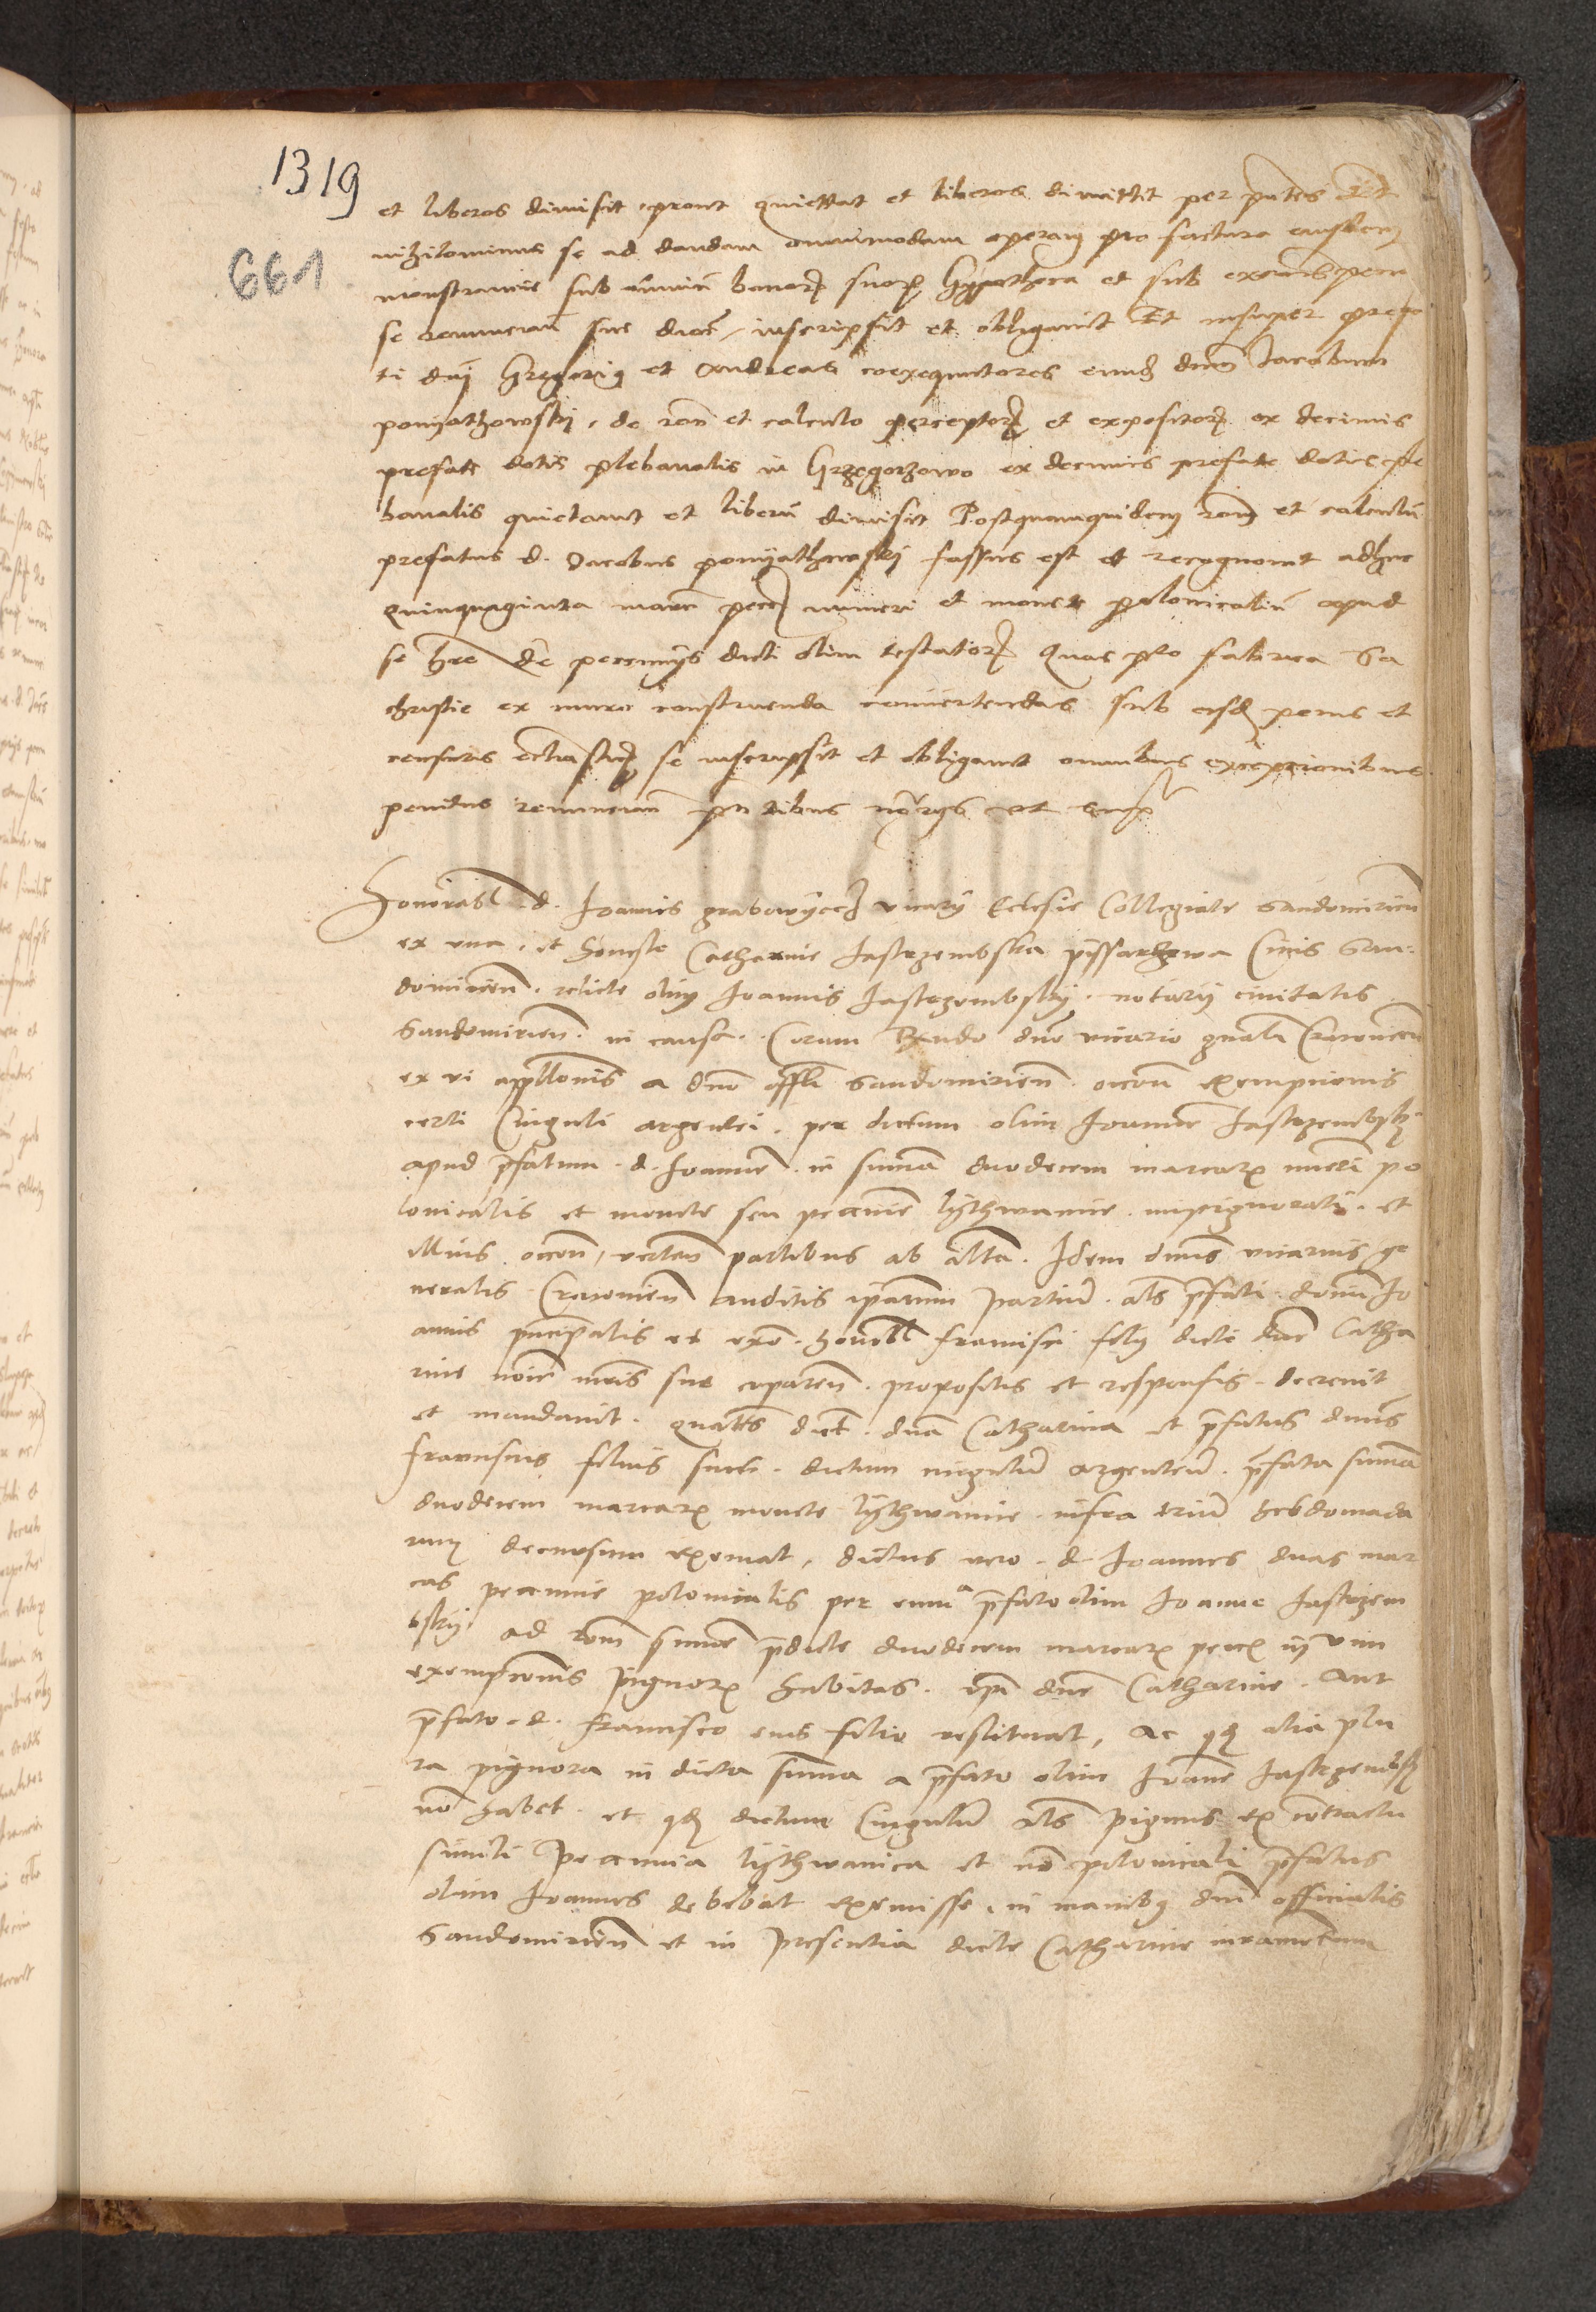 1319
661
et liberos dimisit pront quiettat et liberos dimittit per pntes Et
nihilominus se ad dandam omnimodam operam pro factura eiusdem
monstrancie sub omniu bonor suor hypotheca et sub
se inscripsit et obligavit Et insuper prefa
ti dni Gregorius et Andreas coexequutores eund dnm Iacobum
ponyathowsky, de ron et calculo perceptor et expositor ex decimis
prefate dotis plebanalis in Grzegorzowo ex decimis prefate dotis ple
banalis quietavit et liberu dimisit Postquamquidem ronem et calculu
prefatus d. Iacobus ponyathowsky fassus est et recognovit adhuc
quinquaginta marc pecc numeri et monete polonicaliu apud
se hre de peccunys dicti olim testator Quas pro fabrica sa
christie ex muro construenda convertendas sub eisd penis et
censuris ecclasticis se inscripsit et obligavit omnibus exceptionibus
penitus renuncian pntibus norys ut supra
Honorabl. d. Ioannis grabowyecz vicary Eclesie Collegiate Sandomirien
ex una, et honeste Catharine Iastrzembska pyssarzowa Civis San-
domirien. relicte olim Ioannis Iastrzembsky. notary civitatis
Sandomirien. in causa. Coram Rndo dno vicario gnali Cracovien
ex vi appllonis a dno offli Sandomirien. occon exemptionis
certi Cinguli argentei. per dictum olim Ioanne Iastrzembsky
apud pfatum. d. Ioanne. in suma duodecim marcar nueri po
lonicalis et monete seu peccunie lythwanice. impignorati. et
illius occon, verten partibus ab altra. Idem dnus vicarius ge
neralis Cracovien auditis iparum partiu. als pfati. domini Io
annis principalis et honobl Francisci fily dicte dne Catha
rine noie mris sue coparen. propositis et responsis. decrevit
et mandavit. quatts dict. dna Catharina et pfatus dnus
Franciscus filius suus. dictum cingulu argenteu. pfata suma
duodecim marcar monete lythwanice. infra triu hebdomada
rum decursum exemat, dictus vero. d Ioannes duas mar
cas peccunie polonicalis per eum a pfato olim Ioanne Iastrzem
bsky. ad ronem sume pdicte duodecim marcar pecc in vim
exempcionis pignor habitas. ipi dne Catharine. Aut
pfato. d. Francisco eius filio restituat, Ac qd alia plu
ra pignora in dicta suma a pfato olim Ioane Iastrzembsky
no habet. et qd dictum Cingulu als pignus ex contractu
simili peccunia lythwanica et no polonicali pfatus
olim Ioannes debebat exemisse. in manibus dni officialis
Sandomirien et in presentia dicte Catharine iuramentum